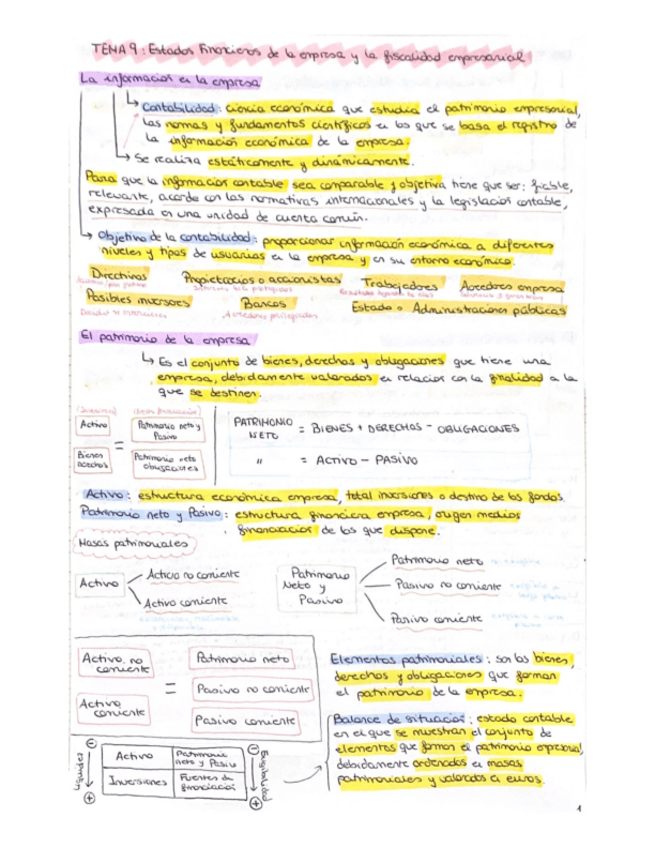 TEMA 9: Estados Financieros de la empresa y la fiscalidad empresarial
La información en la empresa
Contabilidad: ciencia económica que estudia el patrimonio empresarial,
las normas y fundamentos científicos en los que se basa el registro de
la información económica de la empresa.
Se realiza estáticamente y dinámicamente.
Para que la información contable sea comparable y objetiva tiene que ser: fiable,
relevante, acorde con las normativas internacionales y la legislación contable,
expresada en una unidad de cuenta común.
Objetivo de la contabilidad: proporcionar información económica a diferentes
niveles y tipos de usuarios en la empresa y en su entorno económico.
Directivos Propietarios o accionistas Trabajadores Acreedores empresa
Posibles inversores Bancos Estado o Administraciones públicas
Acreedores privilegiados
El patrimonio de la empresa
Es el conjunto de bienes, derechos y obligaciones que tiene una
empresa, debidamente valorados en relación con la finalidad a la
que se destinen.
Activo = Patrimonio neto y Pasivo
Bienes Derechos Patrimonio neto obligaciones
PATRIMONIO NETO = BIENES + DERECHOS - OBLIGACIONES
" = ACTIVO - PASIVO
Activo: estructura económica empresa, total inversiones o destino de los fondos.
Patrimonio neto y Pasivo: estructura financiera empresa, origen medios
financiación de los que dispone.
Masas patrimoniales
Activo
Activo no corriente
Activo corriente
Patrimonio Neto y Pasivo
Patrimonio neto
Pasivo no corriente
Pasivo corriente
Activo no corriente
Activo corriente
=
Patrimonio neto
Pasivo no corriente
Pasivo corriente
Elementos patrimoniales: son los bienes,
derechos y obligaciones que forman
el patrimonio de la empresa.
Balance de situación: estado contable
en el que se muestran el conjunto de
elementos que forman el patrimonio empresarial,
debidamente ordenados en masas
patrimoniales y valorados en euros.
Liquidez - +
Activo Patrimonio neto y Pasivo
Inversiones Fuentes de financiación
- + Exigibilidad
1